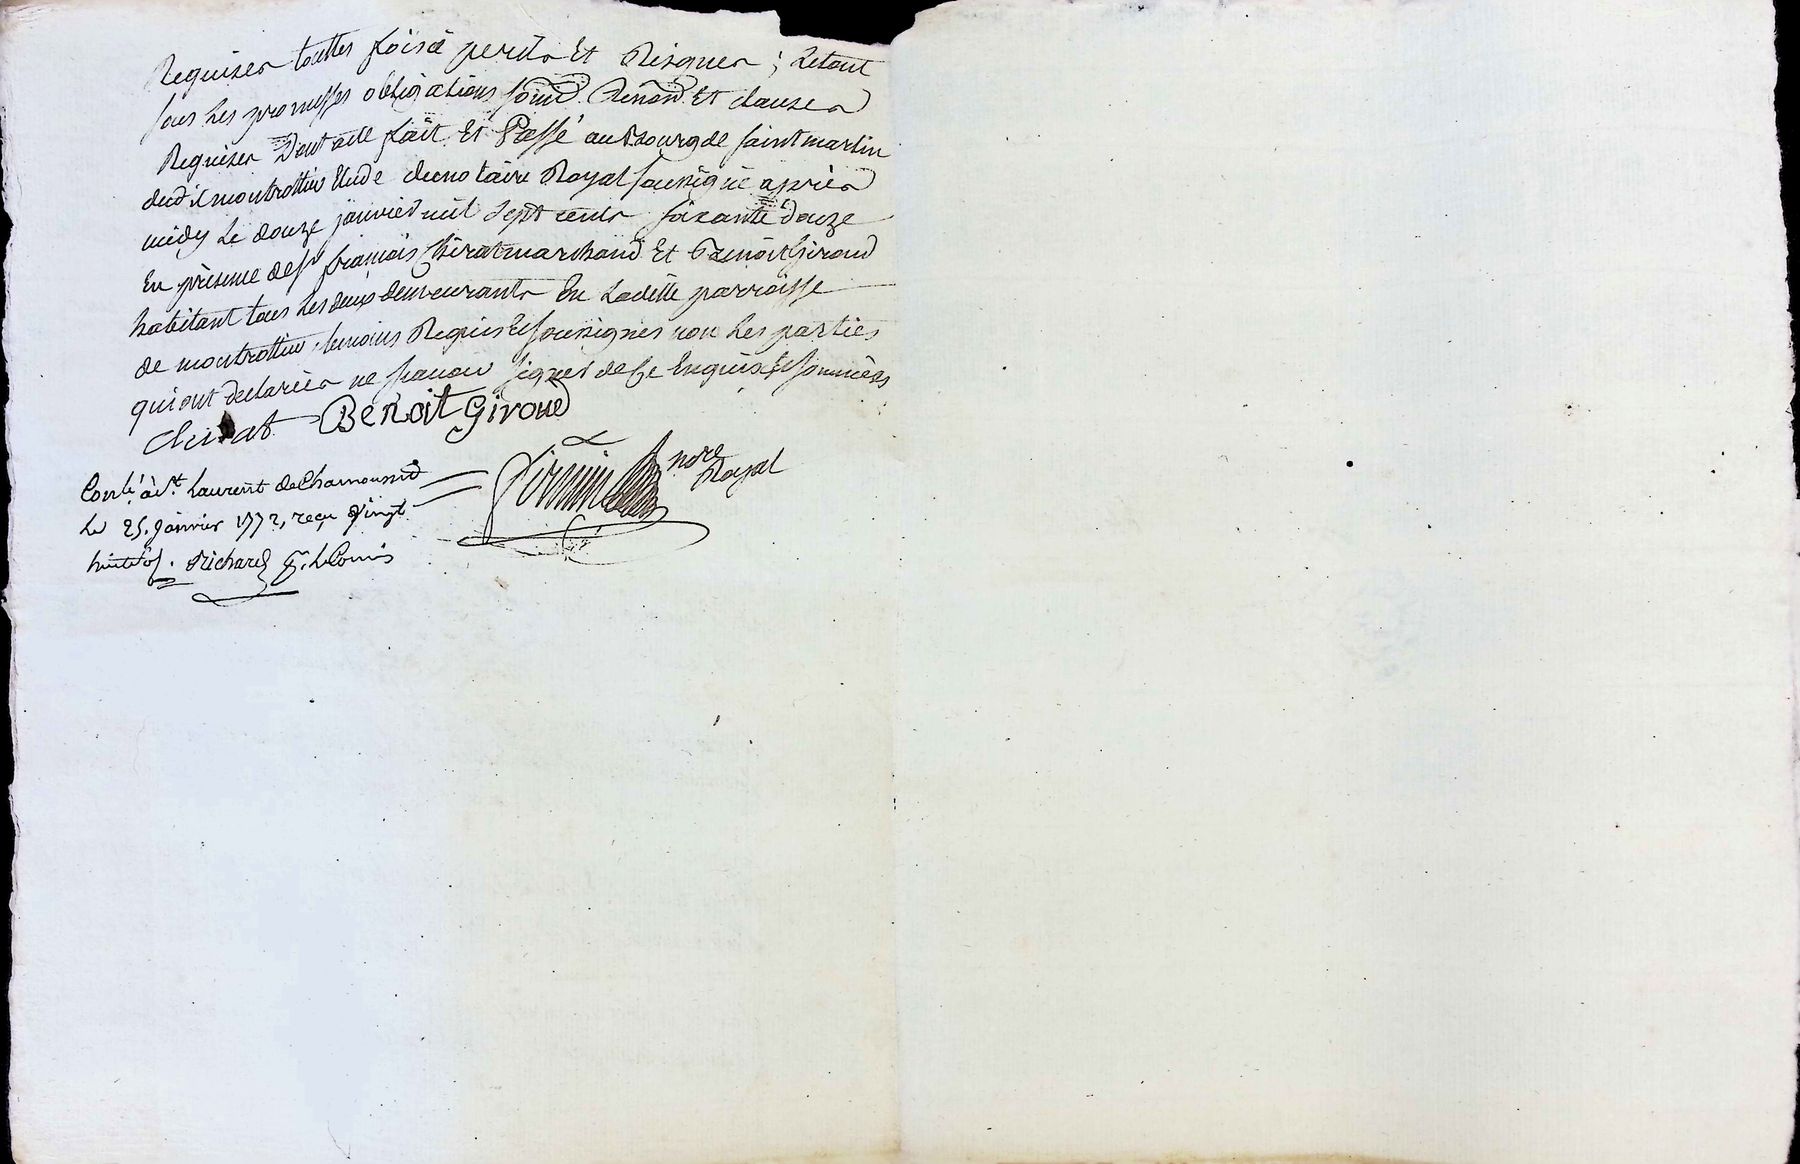 Requises touttes fois à perils Et Risques ; Le tout
sous les promesses obligations soumd. Renond. Et clauses
Requises Dont acte fait Et Passé au Bourg de saint martin
dud.it montrottier Etude du notaire Royal soussigné après
midy Le douze janvier mil sept cents soixante douze
En présence de sr. françois Chirat marchand Et Benoit Giroud
habitant tous les deux demeurants En Laditte parroisse
de montrottier, temoins Requis Et soussignes non Les parties
qui ont declarées ne sçavoir signer de ce Enquises Et sommées
chirat Benoit Giroud
nore
Royal
Conlé. à st. Laurent de Chamousset
Le 25. janvier 1772, reçu vingt
huit sols. Richard